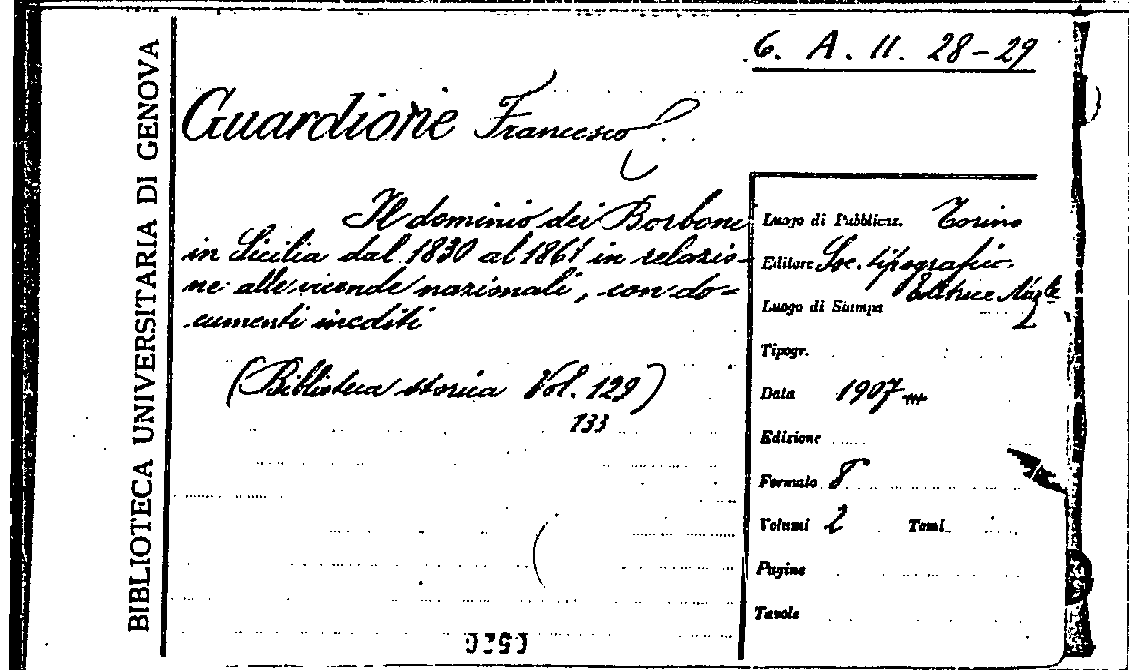 6. A. 11. 28-29
BIBLIOTECA UNIVERSITARIA DI GENOVA
Guardione Francesco
Il dominio dei Borboni
in Sicilia dal 1830 al 1861 in relazio-
ne alle vicende nazionali, con do=
cumenti inediti
(Biblioteca storica Vol. 129)
133
Luogo di Pubblicaz. Torino
Editore Soc. tipografico.
Editrice Naz.le
Luogo di Stampa
Tipogr.
Data 1907
Edizione
Formato 8
Volumi 2 Tomi
Pagine
Tavole